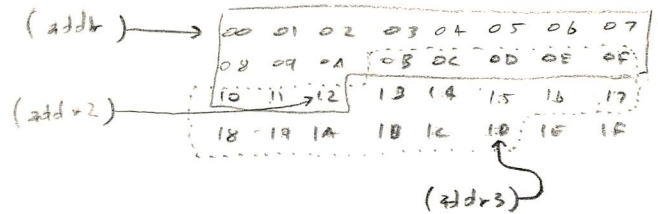 (addr) 00 01 02 03 04 05 06 07
08 09 0A 0B 0C 0D 0E 0F
(addr2) 10 11 12 13 14 15 16 17
18 19 1A 1B 1C 1D 1E 1F
(addr3)